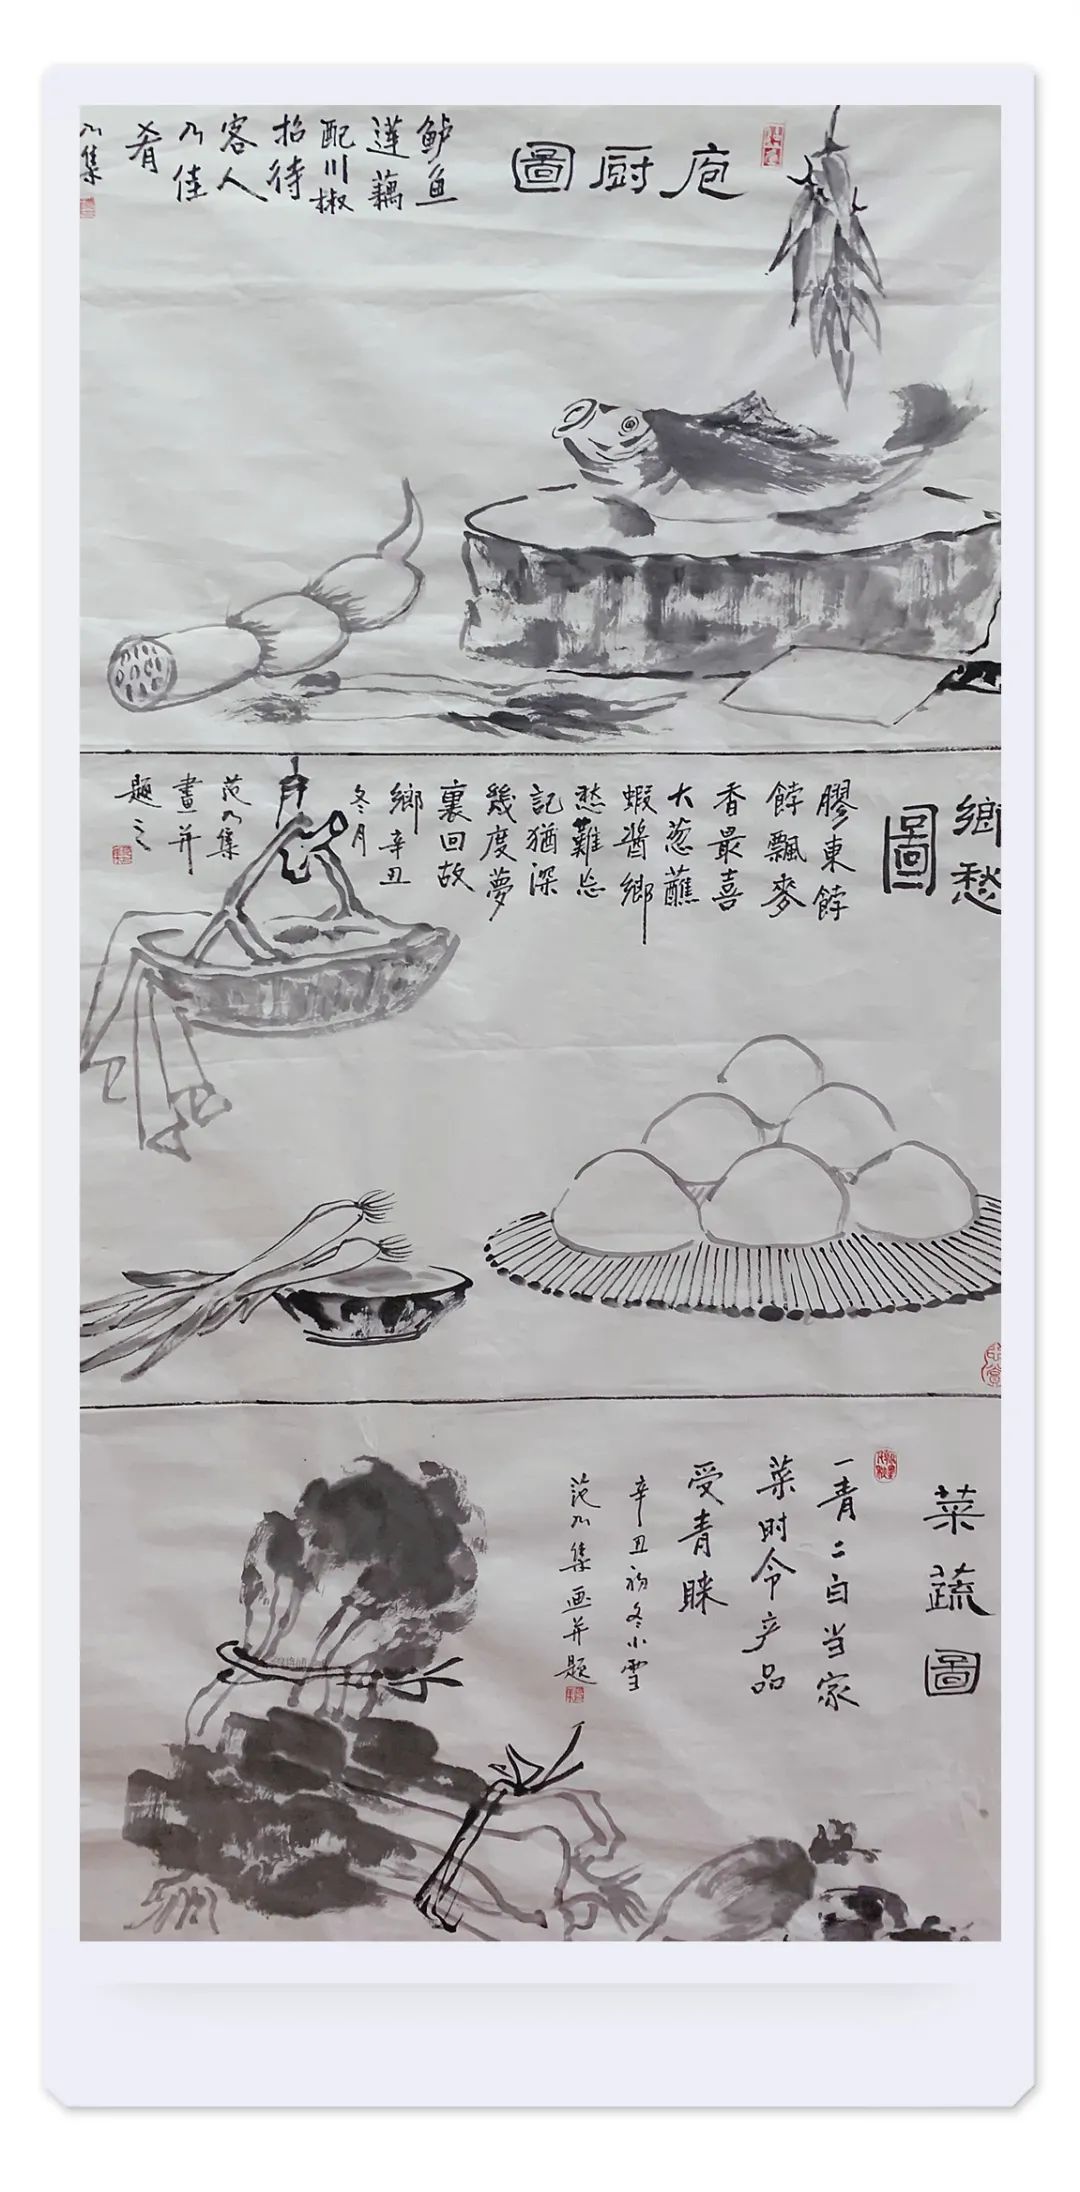 庖厨圖
鲈鱼
蓮藕
配川椒
招待
客人
乃佳
肴
乃集
鄉愁
圖
膠東餑
餑飄麥
香最喜
大葱蘸
蝦醬鄉
愁難忘
記猶深
幾度夢
裏回故
鄉辛丑
冬月
范乃集
畫并
題之
菜蔬圖
一青二白当家
菜时令产品
受青睐
辛丑初冬小雪
范乃集画并题